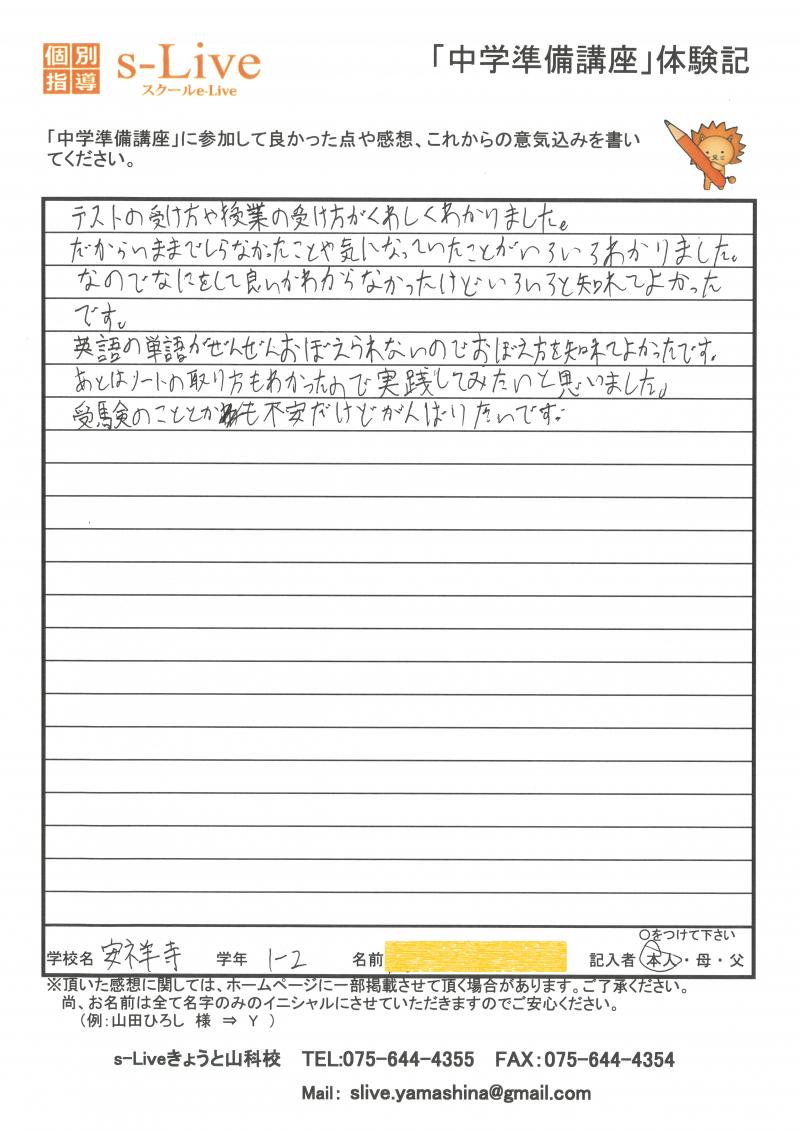 個別
指導
s-Live
スクールe-Live
「中学準備講座」体験記
「中学準備講座」に参加して良かった点や感想、これからの意気込みを書い
てください。
テストの受け方や授業の受け方がくわしくわかりました。
だからいままでしらなかったことや気になっていたことがいろいろわかりました。
なのでなにをして良いかわからなかったけどいろいろと知れてよかった
です。
英語の単語がぜんぜんおぼえられないのでおぼえ方を知れてよかったです。
あとはノートの取り方もわかったので実践してみたいと思いました。
受験のこととかも不安だけどがんばりたいです。
○をつけて下さい
学校名 安祥寺 学年 1-2 名前 記入者 本人・母・父
※頂いた感想に関しては、ホームページに一部掲載させて頂く場合があります。ご了承ください。
尚、お名前は全て名字のみのイニシャルにさせていただきますのでご安心ください。
(例:山田ひろし 様 ⇒ Y )
s-Liveきょうと山科校 TEL:075-644-4355 FAX:075-644-4354
Mail: slive.yamashina@gmail.com